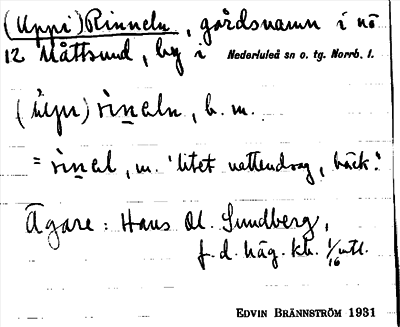 (Uppi) Rinneln, gårdsnamn i nº
12 Måttsund, by i Nederluleå sn o. tg. Norrb. l.
rineln, b. m.
= rinel, m. 'litet vattendrag, bäck'.
Ägare: Hans Ol. Sundberg,
f. d. häg. kh. 1/16 mtl.
EDVIN BRÄNNSTRÖM 1931